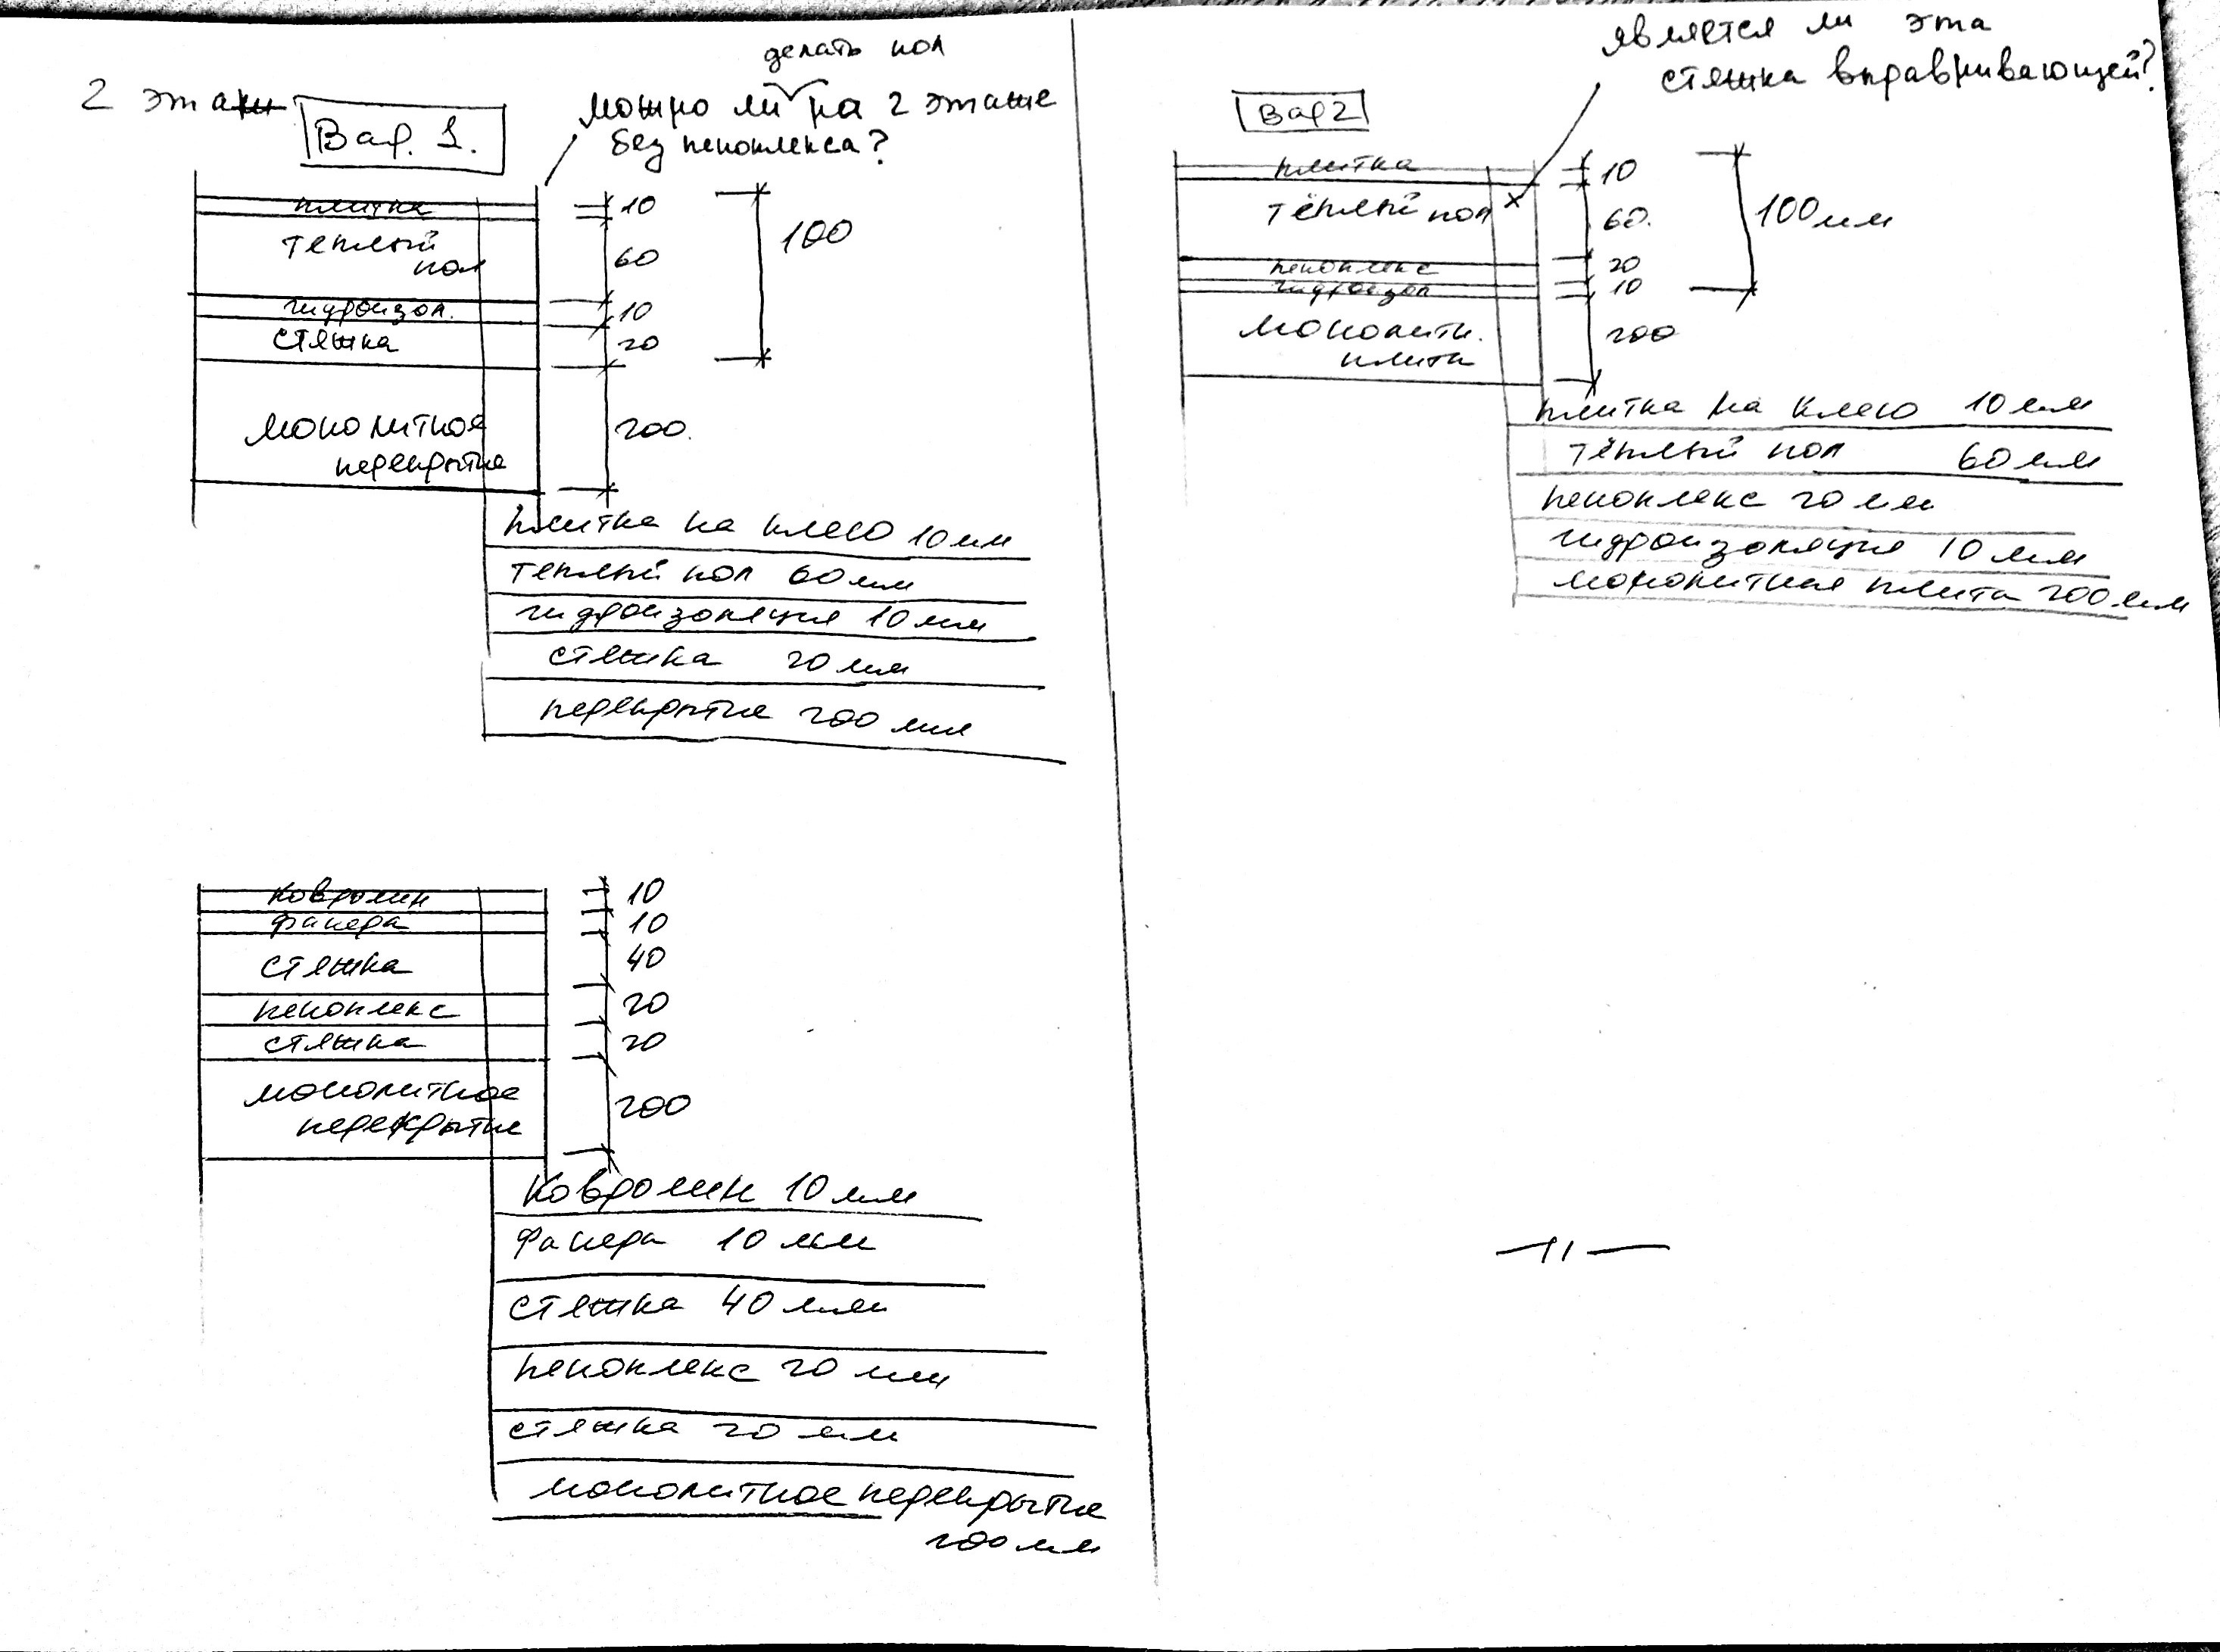 2 этаж
Вар. 1.
делать пол
можно ли на 2 этаже
без пеноплекса?
плитка
тёплый
пол
гидроизол.
стяжка
монолитное
перекрытие
10
60
10
20
200
100
плитка на клею 10 мм
тёплый пол 60 мм
гидроизоляция 10 мм
стяжка 20 мм
перекрытие 200 мм
ковролин
фанера
стяжка
пеноплекс
стяжка
монолитное
перекрытие
10
10
40
20
20
200
Ковролин 10 мм
Фанера 10 мм
стяжка 40 мм
пеноплекс 20 мм
стяжка 20 мм
монолитное перекрытие
200 мм
является ли эта
стяжка выравнивающей?
Вар 2
плитка
тёплый пол
пеноплекс
гидроизол
монолитн.
плита
10
60.
20
10
200
100 мм
плитка на клею 10 мм
тёплый пол 60 мм
пеноплекс 20 мм
гидроизоляция 10 мм
монолитная плита 200 мм
—11—